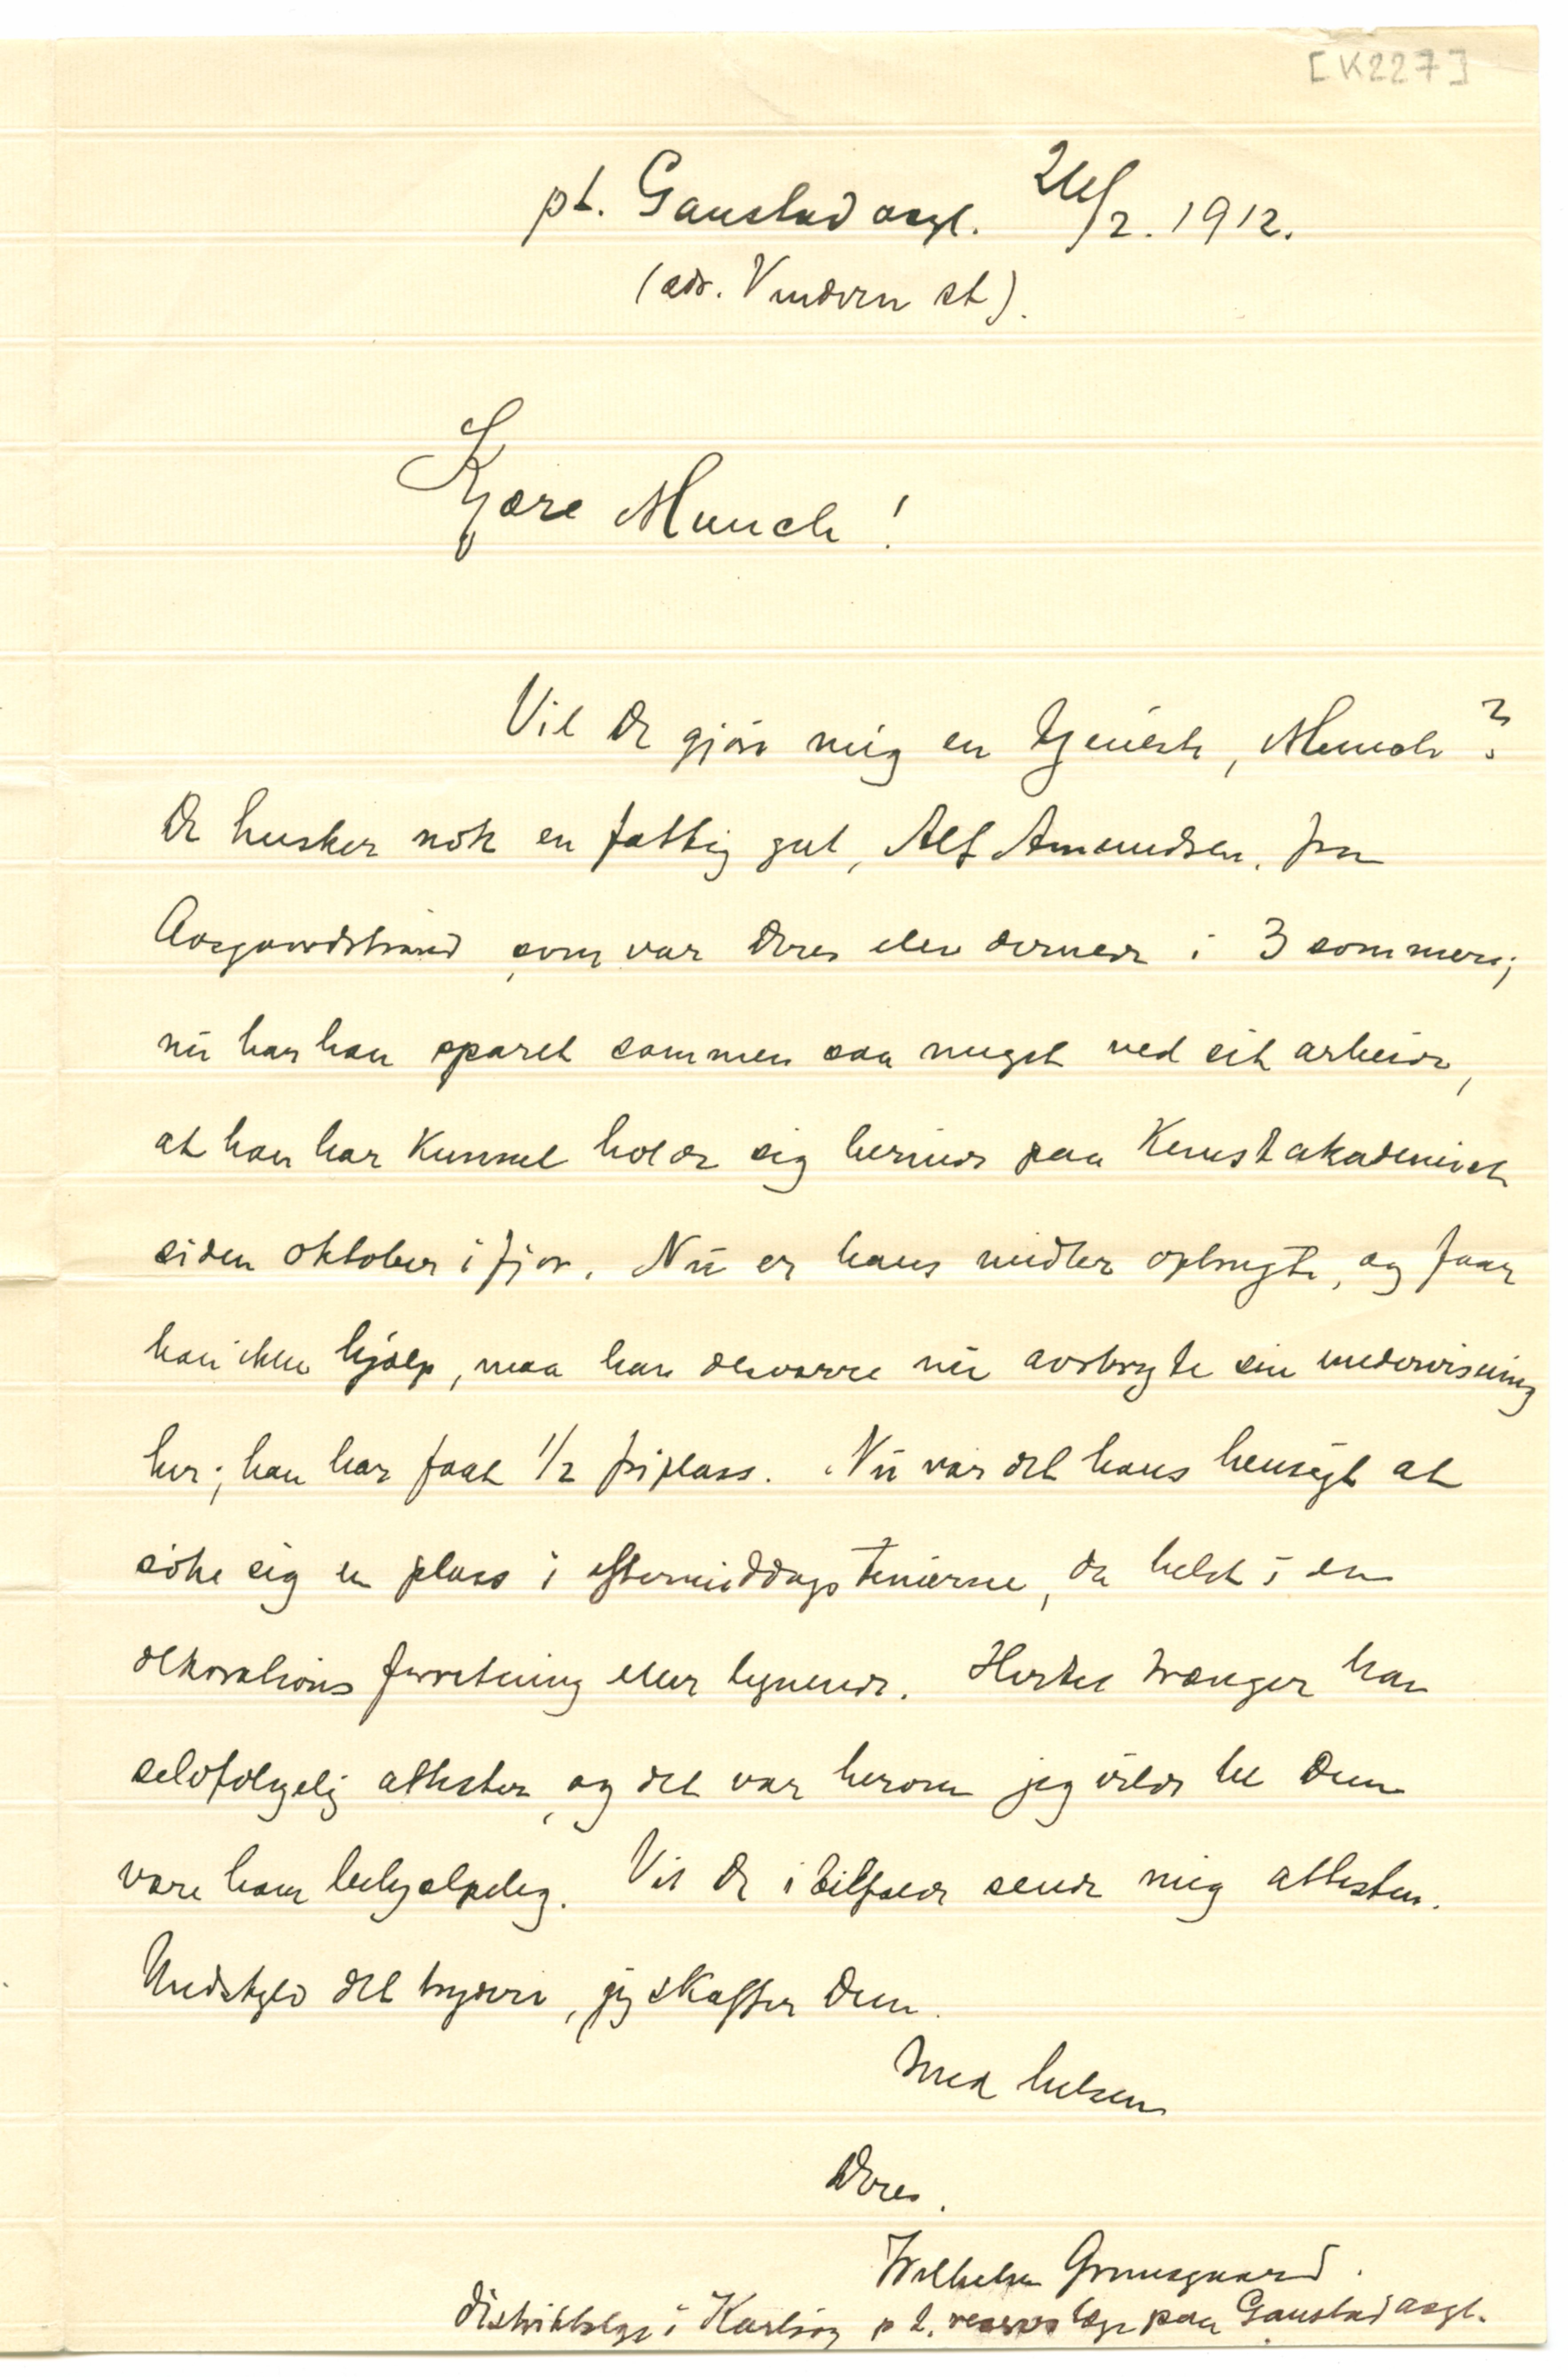 [K227]
pt. Gaustad asyl. 26/2. 1912.
(adr. Vinderen st).
Kjære Munch!
Vil De gjøre mig en tjeneste, Munch?
De husker nok en fattig gut, Alf Amundsen, fra
Aasgaardstrand, som var Deres elev dernede i 3 sommere;
nu har han sparet sammen saa meget ved sit arbeide,
at han har kunnet holde sig herinde paa Kunstakademiet
siden oktober ifjor. Nu er hans midler opbrugte, og faar
han ikke hjælp, maa han desværre nu avbryte sin undervisning
her; han har faat 1/2 friplass. Nu var det hans hensigt at
söke sig en plass i eftermiddagstimerne, da helst i en
dekorations forretning eller lignende. Hertil trænger han
selvfölgelig attester, og det var herom jeg vilde be Dem
være ham behjælpelig. Vil De i tilfælde sende mig attesten.
Undskyld det bryderi, jeg skaffer Dem.
Med hilsen
Deres.
Wilhelm
distriktslæge i Karlsöy p t. reservelæge paa Gaustad asyl.